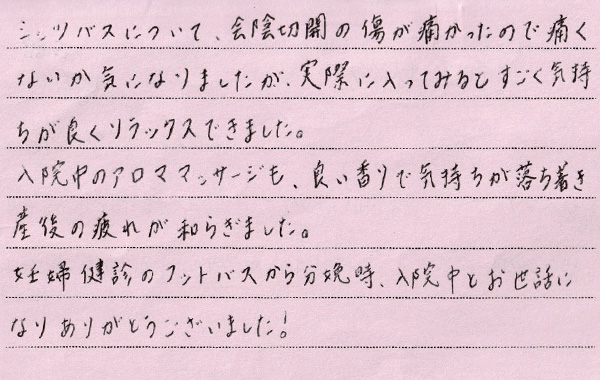 シッツバスについて、会陰切開の傷が痛かったので痛く
ないか気になりましたが、実際に入ってみるとすごく気持
ちが良くリラックスできました。
入院中のアロママッサージも、良い香りで気持ちが落ち着き
産後の疲れが和らぎました。
妊婦健診のフットバスから分娩時、入院中とお世話に
なりありがとうございました!